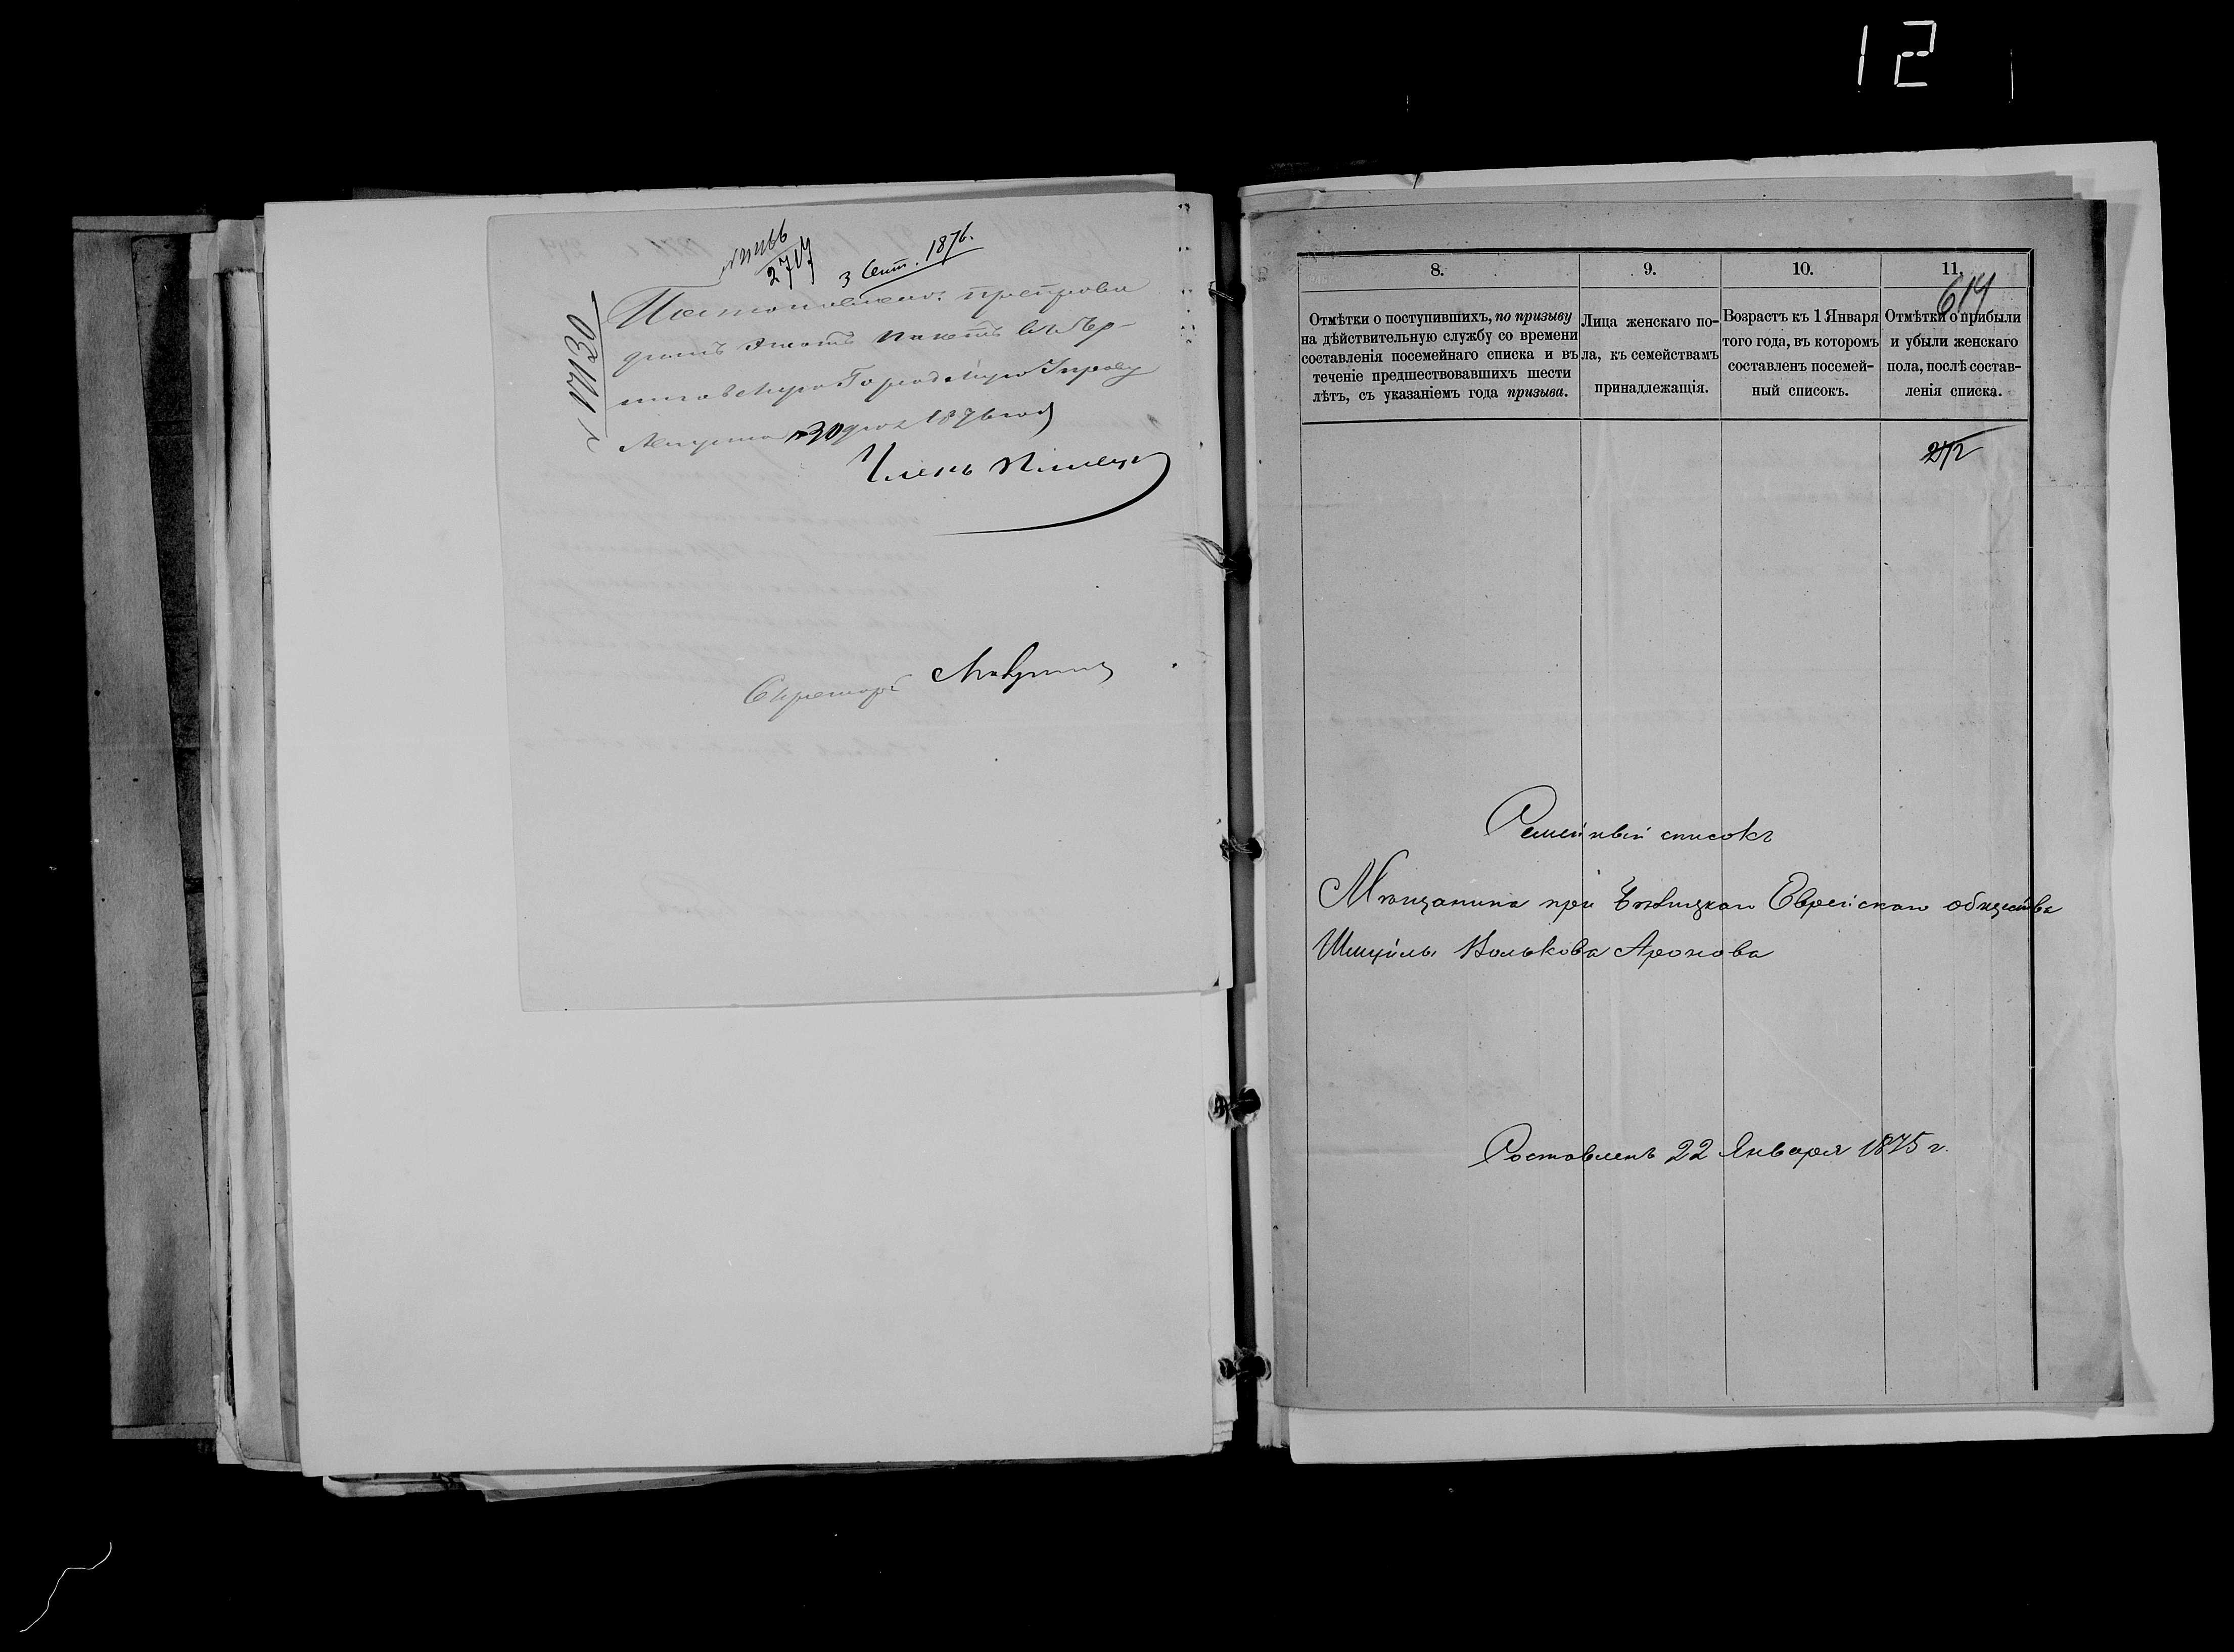 12
2717
3 Сент. 1876.
№ 17130
Постановлено: препрово
дить этотъ пакетъ въ Бер-
Городскую Управу
Августа 30 дня 1876 года
Членъ
Секретарь
8.
9.
10.
11.
614
Отмѣтки о поступившихъ, по призыву
на дѣйствительную службу со времени
составленія посемейнаго списка и въ
теченіе предшествовавшихъ шести
лѣтъ, съ указаніемъ года призыва.
Лица женскаго по-
ла, къ семействамъ
принадлежащія.
Возрастъ къ 1 Января
того года, въ которомъ
составленъ посемей-
ный списокъ.
Отмѣтки о прибыли
и убыли женскаго
пола, послѣ состав-
ленія списка.
272
Семейный списокъ
Мѣщанина при Еврейскаго общества
Шмуйлы Волькова Аронова
Составленъ 22 Января 1875 г.